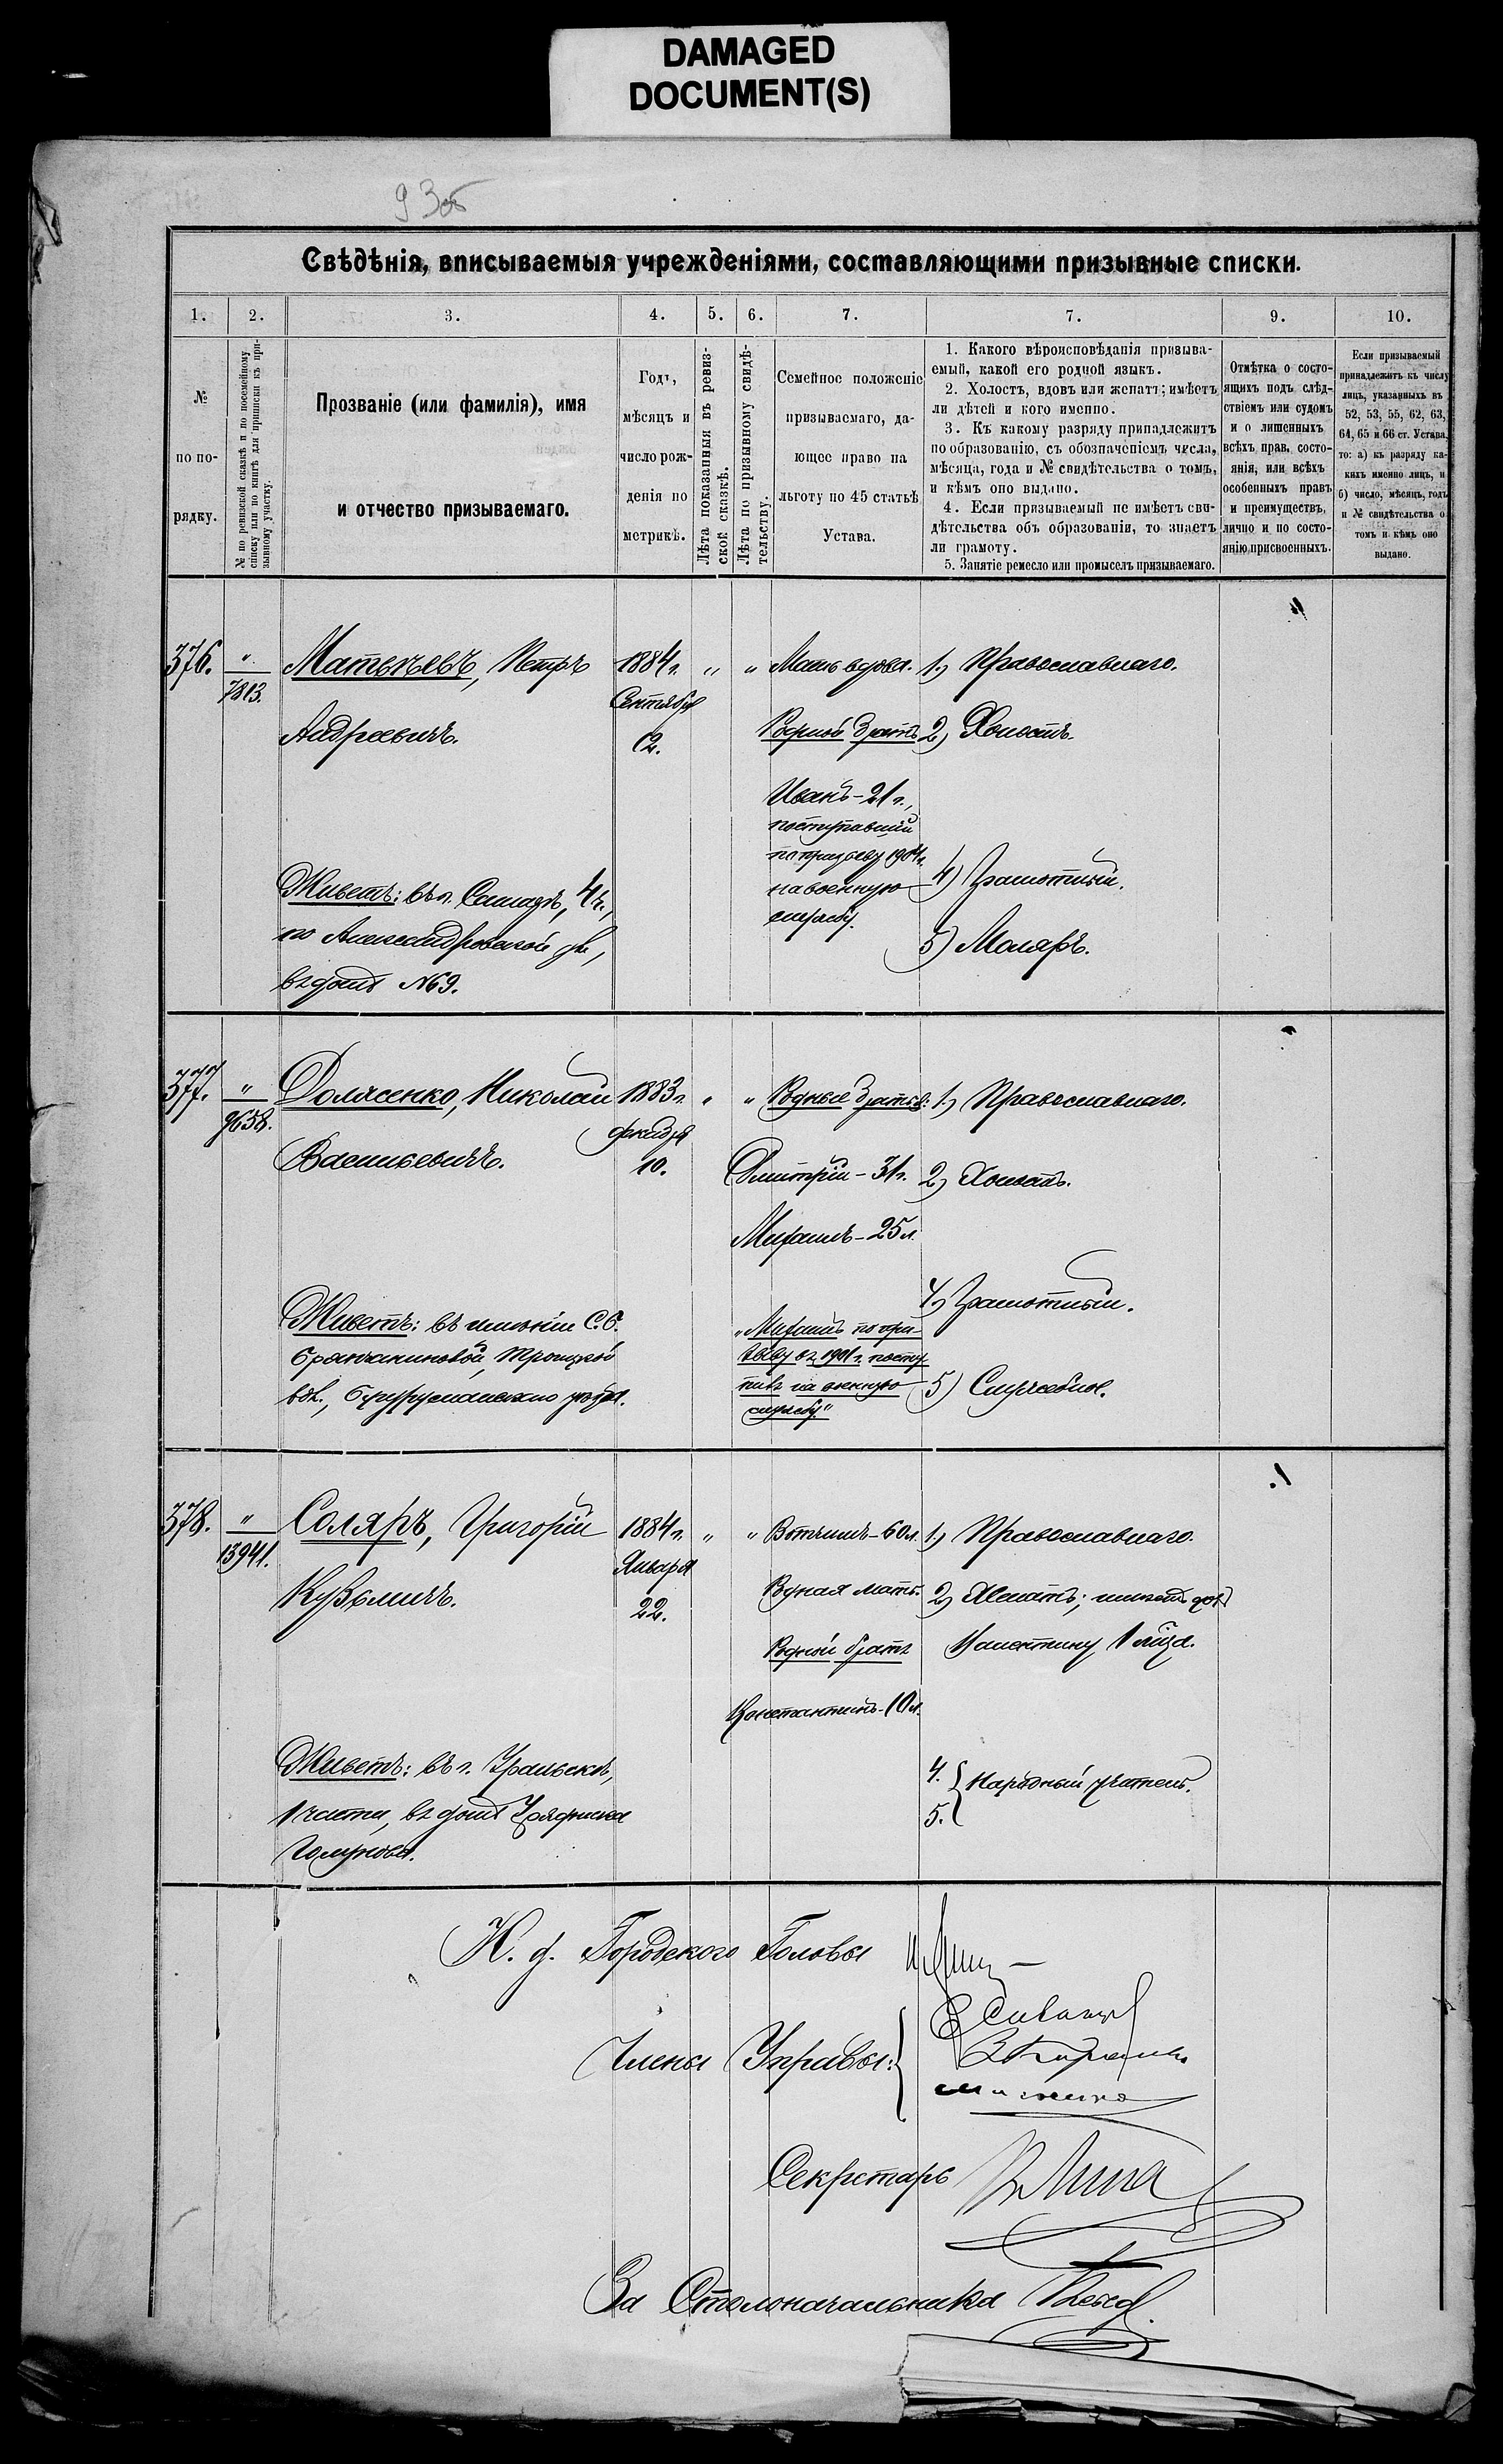 DAMAGED
DOCUMENT(S)
93об
Свѣдѣнія, вписываемыя учрежденіями, составляющими призывные списки.
1. 2. 3. 4. 5. 6. 7. 7. 9. 10.
№
по по-
рядку.
№ по ревизской сказкѣ и по посемейному
списку или по книгѣ для приписки къ при-
зывному участку.
Прозваніе (или фамилія), имя
и отчество призываемаго.
Годъ,
мѣсяцъ и
число рож-
денія по
метрикѣ.
Лѣта показанныя въ ревиз-
ской сказкѣ.
Лѣта по призывному свидѣ-
тельству.
Семейное положеніе
призываемаго, да-
ющее право на
льготу по 45 статьѣ
Устава.
1. Какого вѣроисповѣданія призыва-
емый, какой его родной языкъ.
2. Холостъ, вдовъ или женатъ; имѣетъ
ли дѣтей и кого именно.
3. Къ какому разряду принадлежитъ
по образованію, съ обозначеніемъ числа,
мѣсяца, года и № свидѣтельства о томъ,
и кѣмъ оно выдано.
4. Если призываемый не имѣетъ сви-
дѣтельства объ образованіи, то знаетъ
ли грамоту.
5. Занятіе ремесло или промыселъ призываемаго.
Отмѣтка о состо-
ящихъ подъ слѣд-
ствіемъ или судомъ
и о лишенныхъ
всѣхъ прав, состо-
янія, или всѣхъ
особенныхъ правъ
и преимуществъ,
лично и по состо-
янію присвоенныхъ.
Если призываемый
принадлежитъ къ числу
лицъ, указанныхъ въ
52, 53, 55, 62, 63,
64, 65 и 66 ст. Устава,
то: а) къ разряду ка-
кихъ именно лицъ, и
б) число, мѣсяцъ, годъ
и № свидѣтельства о
томъ и кѣмъ оно
выдано.
376. " 7813. Матвѣевъ, Петръ 1884 г. " " Мать вдова. 1) Православнаго.
Сентября
Андреевичъ. 12. Родной братъ 2) Холостъ.
Иванъ - 21 г.,
поступавшій
по призыву 1904 г.
на военную
службу.
4) Грамотный.
5) Маляръ.
Живетъ: въ г. Самарѣ, 4 ч.,
по Александровской ул.,
въ домѣ №69.
377. " 9658. Долясенко, Николай 1883 г. " " Родные братья: 1) Православнаго.
декабря
Васильевичъ. 10. Дмитрій - 31 г. 2) Холостъ.
Михаилъ - 25 л.
4) Грамотный.
Живетъ: въ имѣніи С. Ф.
Брянчаниновой, Троицкой
вол., Бугурусланскаго уѣзда.
"Михаилъ по при-
зыву въ 1901 г. посту-
пилъ на военную
службу."
5) Служебное.
378. " 13941. Соляръ, Григорій 1884 г. " " Вотчимъ - 60 л. 1) Православнаго.
Января
Кузьмичъ. 22. Родная мать. 2) Женатъ; имѣетъ дочь
Родной братъ Валентину 1 года.
Константинъ - 10 л.
4. 5. { Народный учитель.
Живетъ: въ г. Уральскѣ,
1 части, въ домѣ Урядника
Голунова.
И. д. Городского Головы
Члены Управы:
Секретарь
За Столоначальника